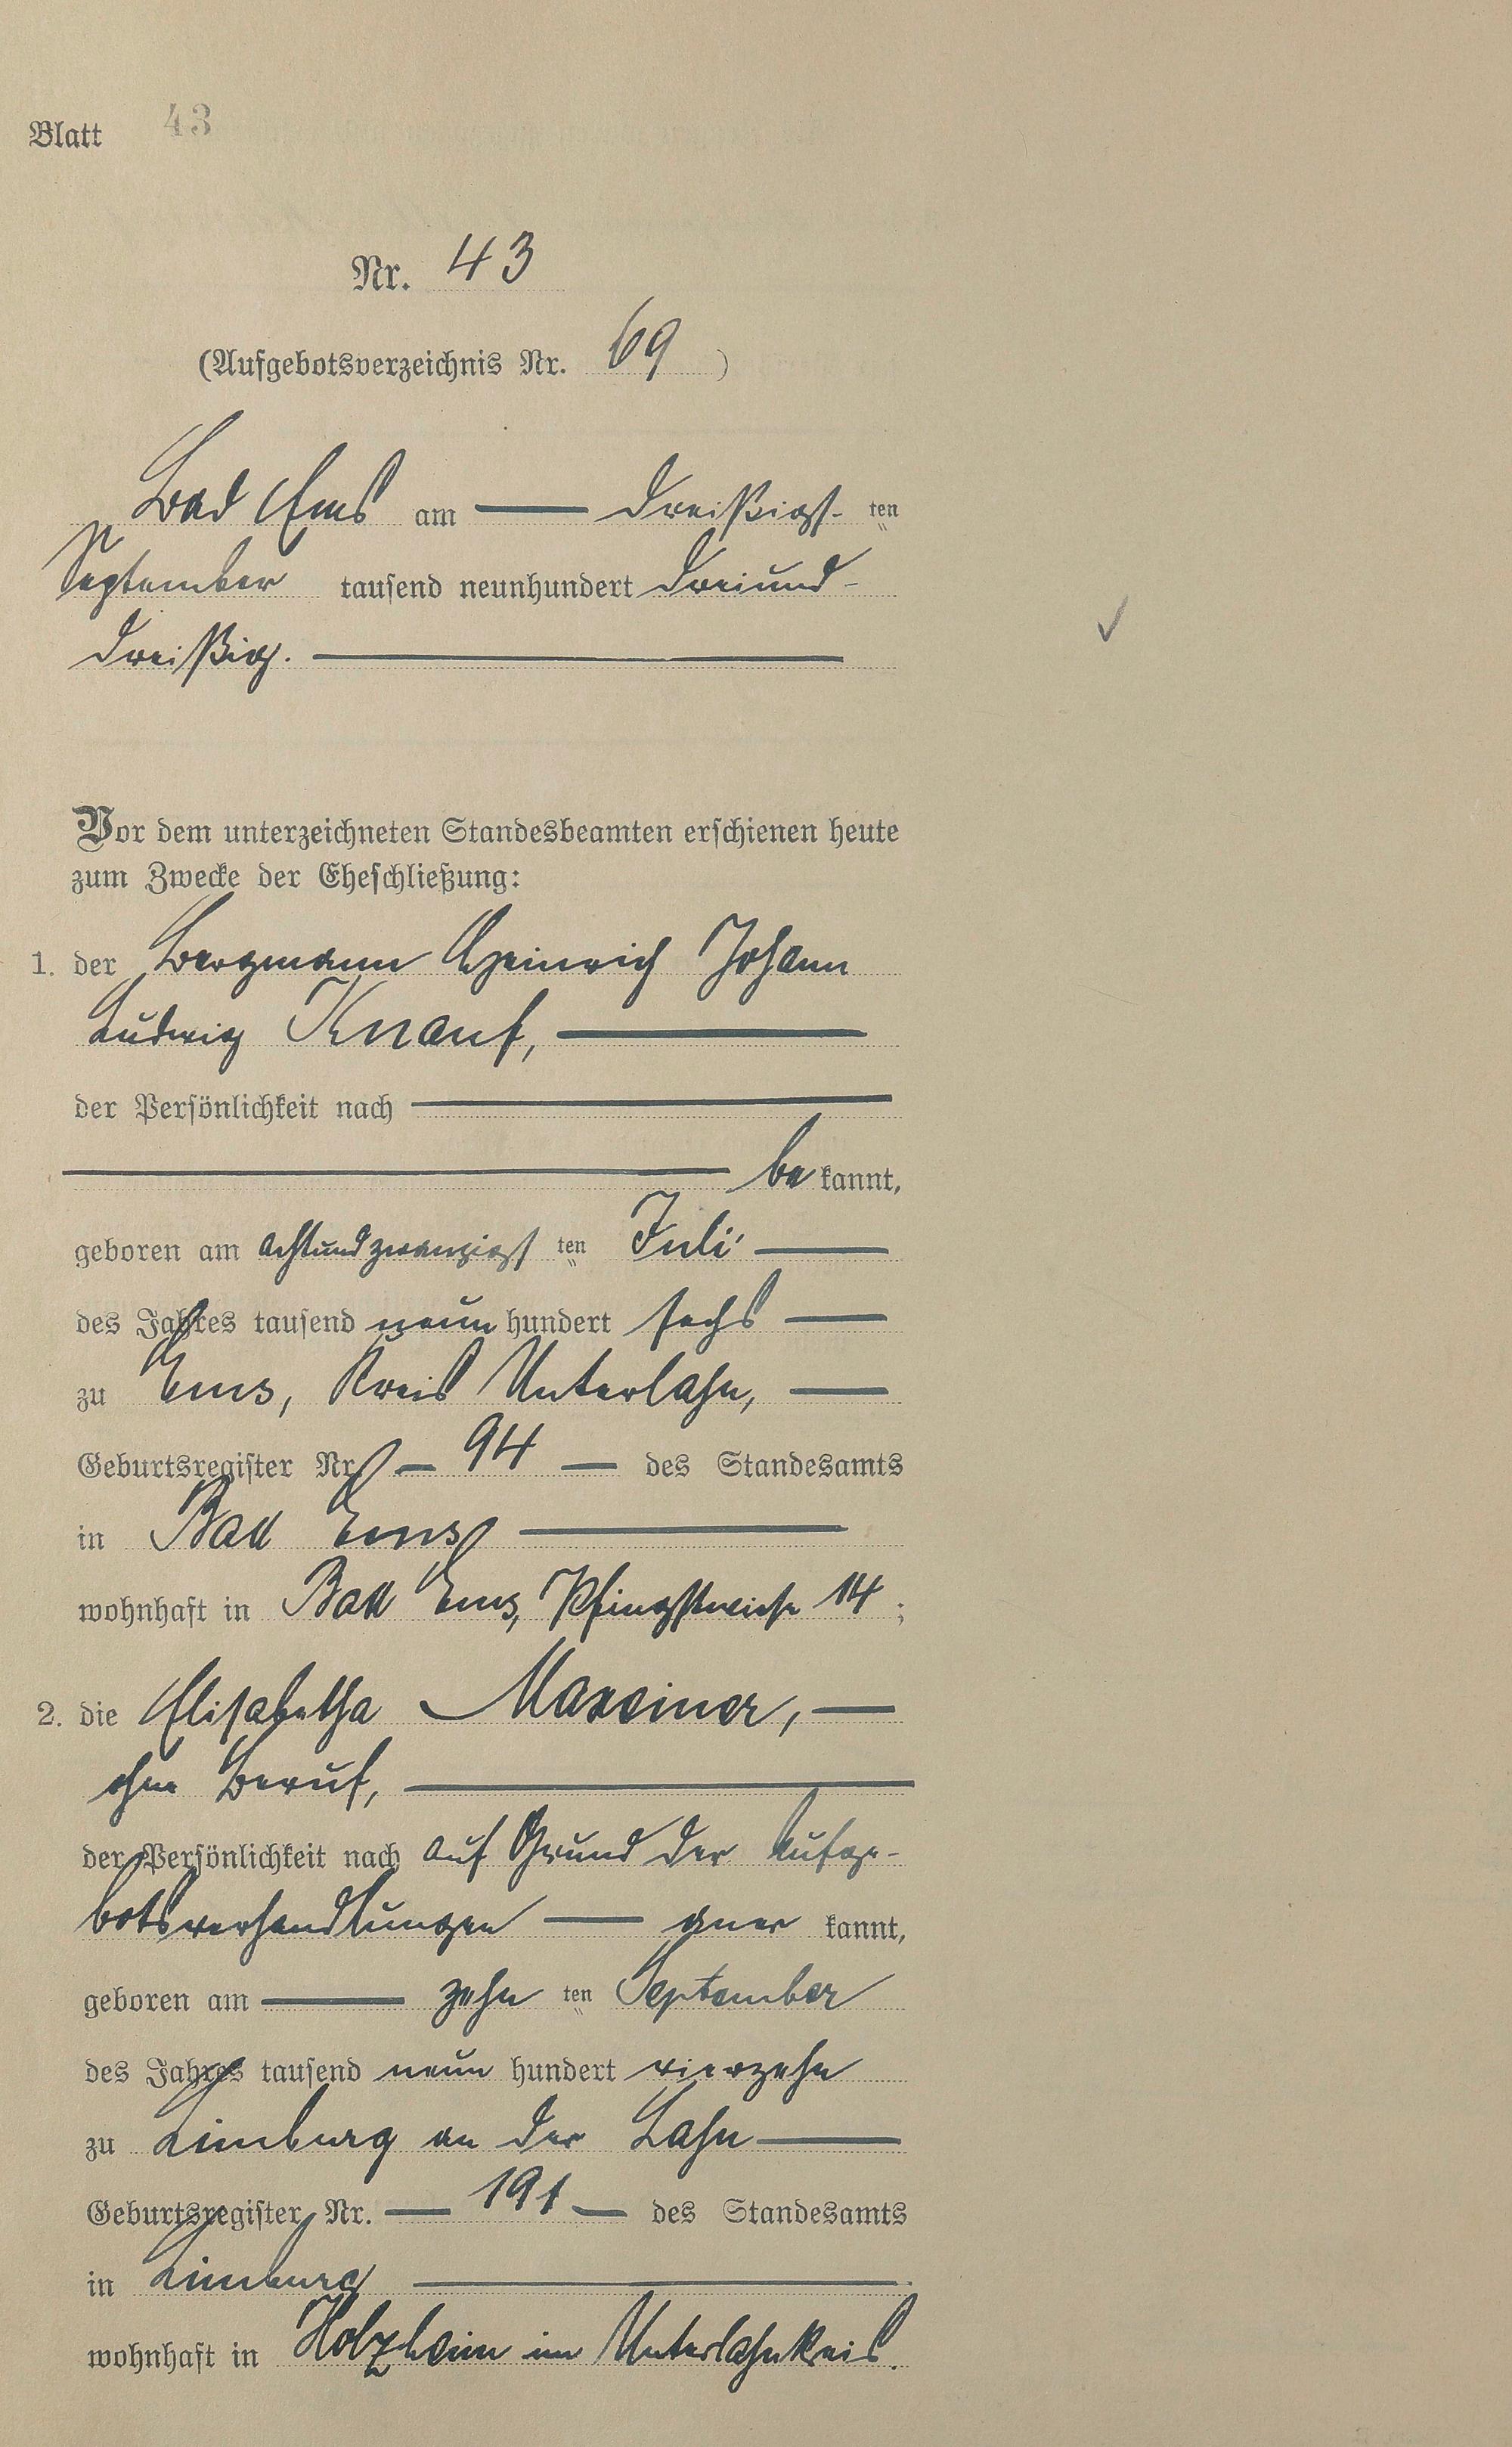 Blatt 43
Nr. 43
(Aufgebotsverzeichnis Nr. 69)
Bad Ems am — dreißigst-ten
September tausend neunhundert dreiund-
dreißig. —
Vor dem unterzeichneten Standesbeamten erschienen heute
zum Zwecke der Eheschließung:
1. der Bergmann Heinrich Johann
Ludwig Knauf, —
der Persönlichkeit nach —
— bekannt,
geboren am achtundzwanzigsten Juli —
des Jahres tausend neunhundert sechs —
zu Ems, Kreis Unterlahn, —
Geburtsregister Nr. — 94 — des Standesamts
in Bad Ems —
wohnhaft in Bad Ems, Pfingstwiese 14;
2. die Elisabetha Maxeiner, —
ohne Beruf, —
der Persönlichkeit nach auf Grund der Aufge-
botsverhandlungen — anerkannt,
geboren am — zehnten September
des Jahres tausend neunhundert vierzehn
zu Limburg an der Lahn —
Geburtsregister Nr. — 191 — des Standesamts
in Limburg —
wohnhaft in Holzheim im Unterlahnkreis.